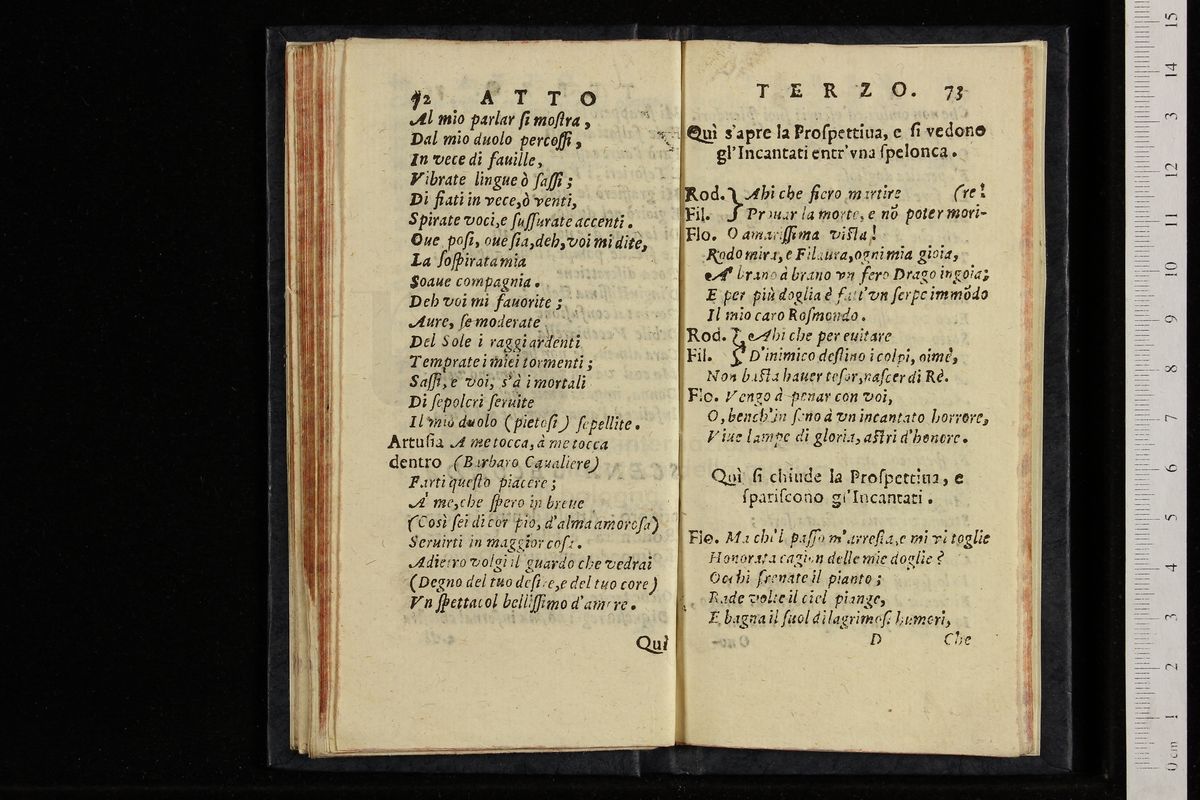 72 ATTO
Al mio parlar ſi moſtra,
Dal mio duolo percoſſi,
In vece di fauille,
Vibrate lingue ò ſaſſi;
Di fiati in vece, ò venti,
Spirate voci, e ſuſſurate accenti.
Oue poſi, oue ſia, deh, voi mi dite,
La ſoſpirata mia
Soaue compagnia.
Deh voi mi fauorite;
Aure, ſe moderate
Del Sole i raggi ardenti
Temprate i miei tormenti;
Saſſi, e voi, s'à i mortali
Di ſepolcri ſeruite
Il mio duolo (pietoſi) ſepellite.
Artuſia A me tocca, à me tocca
dentro (Barbaro Caualiere)
Farti queſto piacere;
A' me, che ſpero in breue
(Così ſei di cor pio, d'alma amoroſa)
Seruirti in maggior coſa.
Adietro volgi il guardo che vedrai
(Degno del tuo deſire, e del tuo core)
Vn ſpettacol belliſſimo d'amore.
Quì
TERZO. 73
Quì s'apre la Proſpettiua, e ſi vedono
gl'Incantati entr'vna ſpelonca.
Rod. } Ahi che fiero martire (re!
Fil. } Prouar la morte, e nõ poter mori-
Flo. O amariſſima viſta!
Rodomira, e Filaura, ogni mia gioia,
A' brano à brano vn fero Drago ingoia;
E per più doglia è fatt'vn ſerpe immõdo
Il mio caro Roſmondo.
Rod. } Ahi che per euitare
Fil. } D'inimico deſtino i colpi, oimè,
Non baſta hauer teſor, naſcer di Rè.
Flo. Vengo à penar con voi,
O, bench'in ſeno à vn incantato horrore,
Viue lampe di gloria, aſtri d'honore.
Quì ſi chiude la Proſpettiua, e
ſpariſcono gl'Incantati.
Flo. Ma chi'l paſſo m'arreſta, e mi vi toglie
Honorata cagion delle mie doglie?
Occhi frenate il pianto;
Rade volte il ciel piange,
E bagna il ſuol di lagrimoſi humori,
D Che